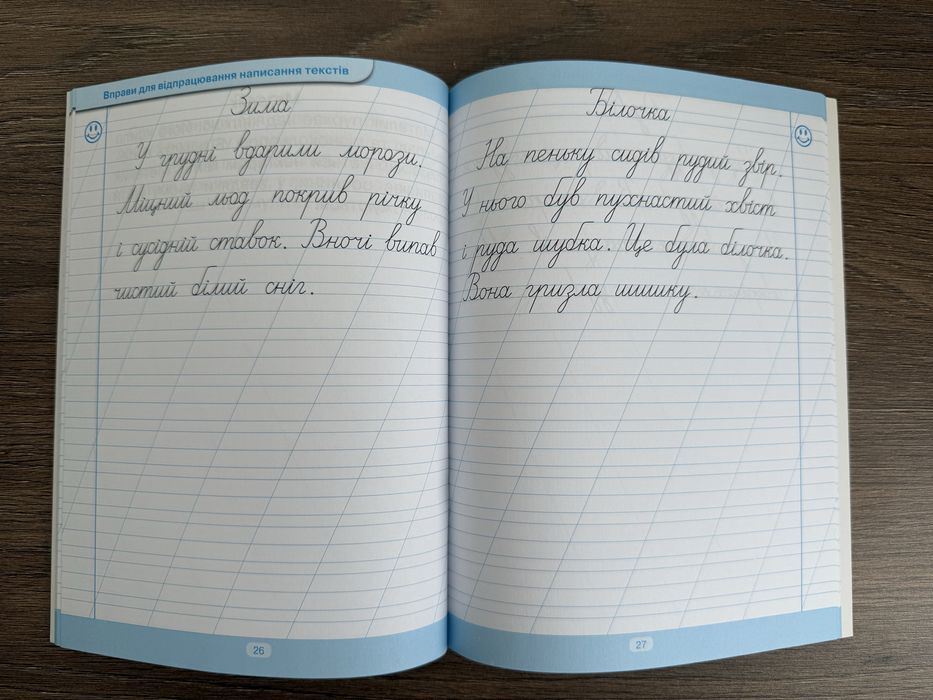 Вправи для відпрацювання написання текстів
Зима
У грудні вдарили морози.
Міцний льод покрив річку
і сусідній ставок. Вночі випав
чистий білий сніг.
26
Білочка
На пеньку сидів рудий звір.
У нього був пухнастий хвіст
і руда шубка. Це була білочка.
Вона гризла шишку.
27